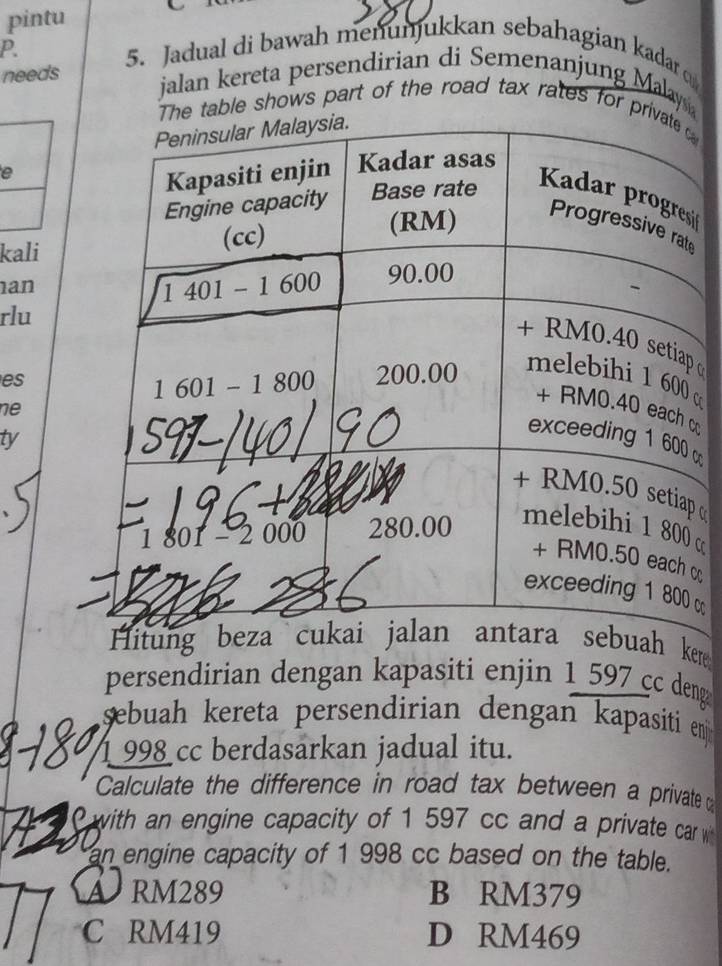 pintu
P.
needs
e
kali
nan
rlu
es
ne
ty
.5
5. Jadual di bawah menunjukkan sebahagian kadar
jalan kereta persendirian di Semenanjung Malaysia
The table shows part of the road tax rates for private
Peninsular Malaysia.
Kapasiti enjin Kadar asas Kadar progresif
Engine capacity Base rate Progressive rate
(cc) (RM)
1 401 – 1 600 90.00 –
+ RM0.40 setiap
melebihi 1 600
1 601 – 1 800 200.00
+ RM0.40 each cc
exceeding 1 600 cc
1597-1401 90
+ RM0.50 setiap
melebihi 1 800
= 196+
1 801 – 2 000 280.00
+ RM0.50 each cc
exceeding 1 800 cc
= 286
Hitung beza cukai jalan antara sebuah
persendirian dengan kapasiti enjin 1 597 cc
sebuah kereta persendirian dengan kapasiti
1 998 cc berdasarkan jadual itu.
Calculate the difference in road tax between a private
with an engine capacity of 1 597 cc and a private car
an engine capacity of 1 998 cc based on the table.
A RM289 B RM379
C RM419 D RM469